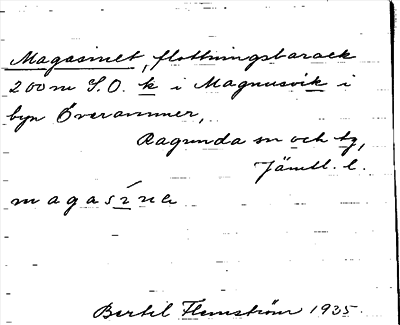 Magasinet, flottningsbarack
200 m S.O. k i Magnusvik i
byn Överammer,
Ragunda sn och tg,
Jämtl. l.
magasíne
Bertil Flemström 1935.